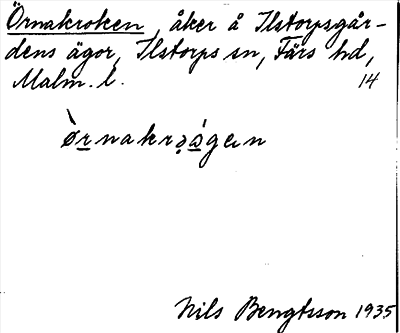 Örnakroken, åker å Ilstorpsgår-
dens ägor, Ilstorps sn, Färs hd,
Malm. l. 14
Nils Bengtsson 1935